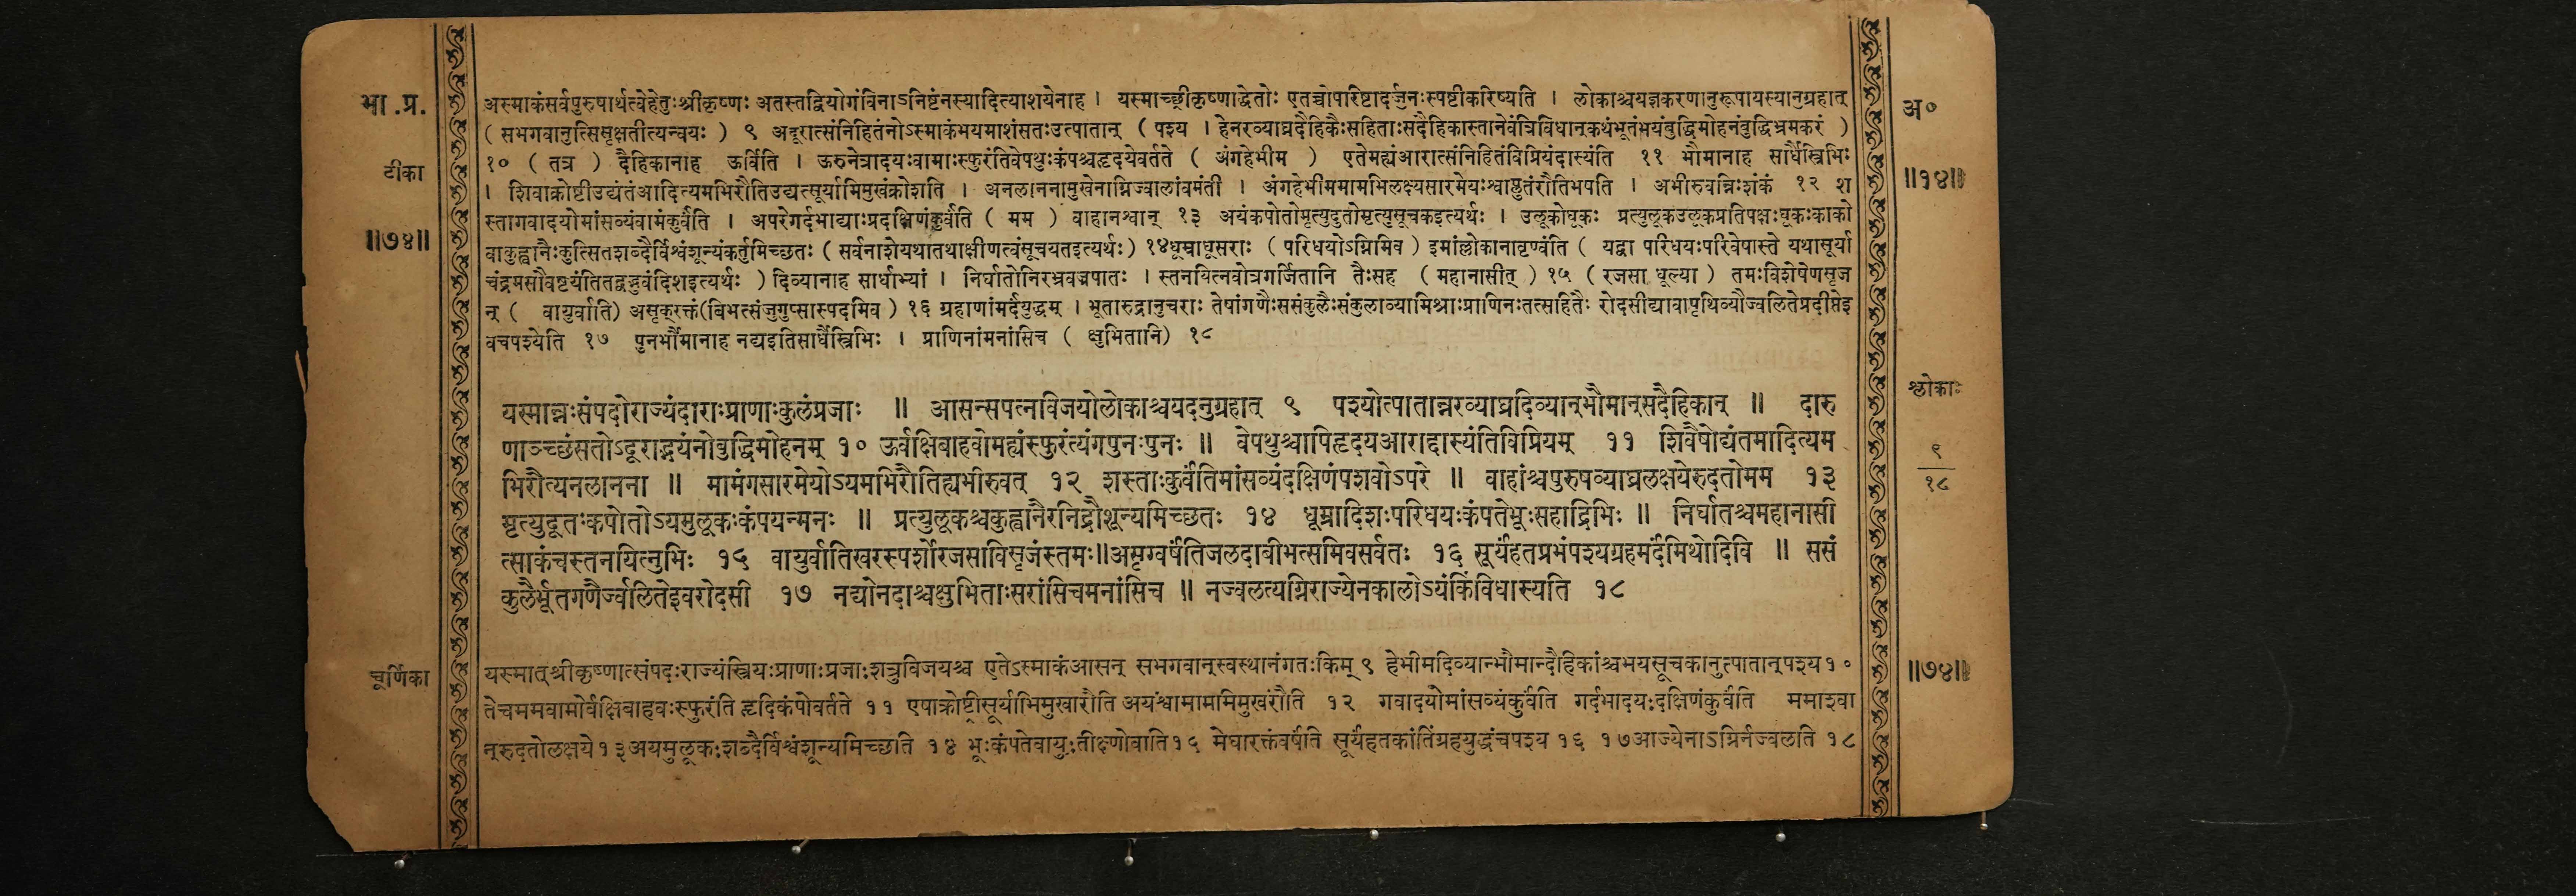 भा.प्र.
टीका
॥७४॥
अस्माकंसर्वपुरुषार्थत्वेहेतुःश्रीकृष्णः अतस्तद्वियोगंविनाऽनिष्टंनस्यादित्याशयेनाह । यस्माच्छ्रीकृष्णाद्धेतोः एतच्चोपरिष्टादर्जुनःस्पष्टीकरिष्यति । लोकाश्चयज्ञकरणानुरूपायस्यानुग्रहात्
( सभगवानुत्सिसृक्षतीत्यन्वयः ) ९ अदूरात्संनिहितंनोऽस्माकंभयमाशंसतःउत्पातान् ( पश्य । हेनरव्याघ्रदैहिकैःसहिताःसदैहिकास्तानेवंत्रिविधान्कथंभूतंभयंबुद्धिमोहनंबुद्धिभ्रमकरं )
१० ( तत्र ) दैहिकानाह ऊर्विति । ऊरुनेत्रादयःवामाःस्फुरंतिवेपथुःकंपश्चहृदयेवर्तते ( अंगहेभीम ) एतेमह्यंआरात्संनिहितंविप्रियंदास्यंति ११ भौमानाह सार्धैस्त्रिभिः
। शिवाक्रोष्टीउद्यंतंआदित्यमभिरौतिउद्यत्सूर्याभिमुखंक्रोशति । अनलाननामुखेनाग्निज्वालांवमंती । अंगहेभीममामभिलक्ष्यसारमेयःश्वाप्लुतंरौतिभषति । अभीरुवन्निःशंकं १२ श
स्तागवादयोमांसव्यंवामंकुर्वंति । अपरेगर्दभाद्याःप्रदक्षिणंकुर्वंति ( मम ) वाहानश्वान् १३ अयंकपोतोमृत्युदुतोमृत्युसूचकइत्यर्थः । उलूकोघूकः प्रत्युलूकउलूकप्रतिपक्षःघूकःकाको
वाकुह्वानैःकुत्सितशब्दैर्विश्वंशून्यंकर्तुमिच्छतः ( सर्वनाशेयथातथाक्षीणत्वंसूचयतइत्यर्थः) १४धूम्राधूसराः ( परिधयोऽग्निमिव ) इमांल्लोकानावृण्वंति ( यद्वा परिधयःपरिवेषास्ते यथासूर्या
चंद्रमसौवेष्टयंतितद्वद्भुवंदिशइत्यर्थः ) दिव्यानाह सार्धाभ्यां । निर्घातोनिरभ्रवज्रपातः । स्तनयित्नवोत्रगर्जितानि तैःसह ( महानासीत् ) १५ ( रजसा धूल्या ) तमःविशेषेणसृज
न् ( वायुर्वाति) असृक्रक्तं(बिभत्संजुगुप्सास्पदमिव ) १६ ग्रहाणांमर्दंयुद्धम् । भूतारुद्रानुचराः तेषांगणैःससंकुलैःसंकुलाव्यामिश्राःप्राणिनःतत्सहितैः रोदसीद्यावापृथिव्यौज्वलितेप्रदीप्तेइ
वचपश्येति १७ पुनर्भौमानाह नद्यइतिसार्धैस्त्रिभिः । प्राणिनांमनांसिच ( क्षुभितानि) १८
यस्मान्नःसंपदोराज्यंदाराःप्राणाःकुलंप्रजाः ॥ आसन्सपत्नविजयोलोकाश्चयदनुग्रहात् ९ पश्योत्पातान्नरव्याघ्रदिव्यान्भौमान्सदैहिकान् ॥ दारु
णाञ्च्छंसतोऽदूराद्भयंनोबुद्धिमोहनम् १० ऊर्वक्षिबाहवोमह्यंस्फुरंत्यंगपुनःपुनः ॥ वेपथुश्चापिहृदयआराद्दास्यंतिविप्रियम् ११ शिवैषोद्यंतमादित्यम
भिरौत्यनलानना ॥ मामंगसारमेयोऽयमभिरौतिह्यभीरुवत् १२ शस्ताःकुर्वंतिमांसव्यंदक्षिणंपशवोऽपरे ॥ वाहांश्चपुरुषव्याघ्रलक्षयेरुदतोमम १३
मृत्युदूतःकपोतोऽयमुलूकःकंपयन्मनः ॥ प्रत्युलूकश्चकुह्वानैरनिद्रौशून्यमिच्छतः १४ धूम्रादिशःपरिधयःकंपतेभूःसहाद्रिभिः ॥ निर्घातश्चमहानासी
त्साकंचस्तनयित्नुभिः १५ वायुर्वातिखरस्पर्शोरजसाविसृजंस्तमः॥असृग्वर्षंतिजलदाबीभत्समिवसर्वतः १६ सूर्यंहतप्रभंपश्यग्रहमर्दंमिथोदिवि ॥ ससं
कुलैर्भूतगणैर्ज्वलितेइवरोदसी १७ नद्योनदाश्चक्षुभिताःसरांसिचमनांसिच ॥ नज्वलत्यग्निराज्येनकालोऽयंकिंविधास्यति १८
चूर्णिका
यस्मात्श्रीकृष्णात्संपदःराज्यंस्त्रियःप्राणाःप्रजाःशत्रुविजयश्च एतेऽस्माकंआसन् सभगवान्स्वस्थानंगतःकिम् ९ हेभीमदिव्यान्भौमान्दैहिकांश्चभयसूचकानुत्पातान्पश्य१०
तेचममवामोर्वक्षिबाहवःस्फुरंति हृदिकंपोवर्तते ११ एषाक्रोष्ट्रीसूर्याभिमुखारौति अयंश्वामामभिमुखंरौति १२ गवादयोमांसव्यंकुर्वंति गर्दभादयःदक्षिणंकुर्वंति ममाश्वा
न्रुदतोलक्षये१३अयमुलूकःशब्दैर्विश्वंशून्यमिच्छति १४ भूःकंपतेवायुःतीक्ष्णोवाति१५ मेघारक्तंवर्षंति सूर्यंहतकांतिंग्रहयुद्धंचपश्य १६ १७आज्येनाऽग्निर्नज्वलति १८
अ०
॥१४॥
श्लोकाः
९
१८
॥७४॥